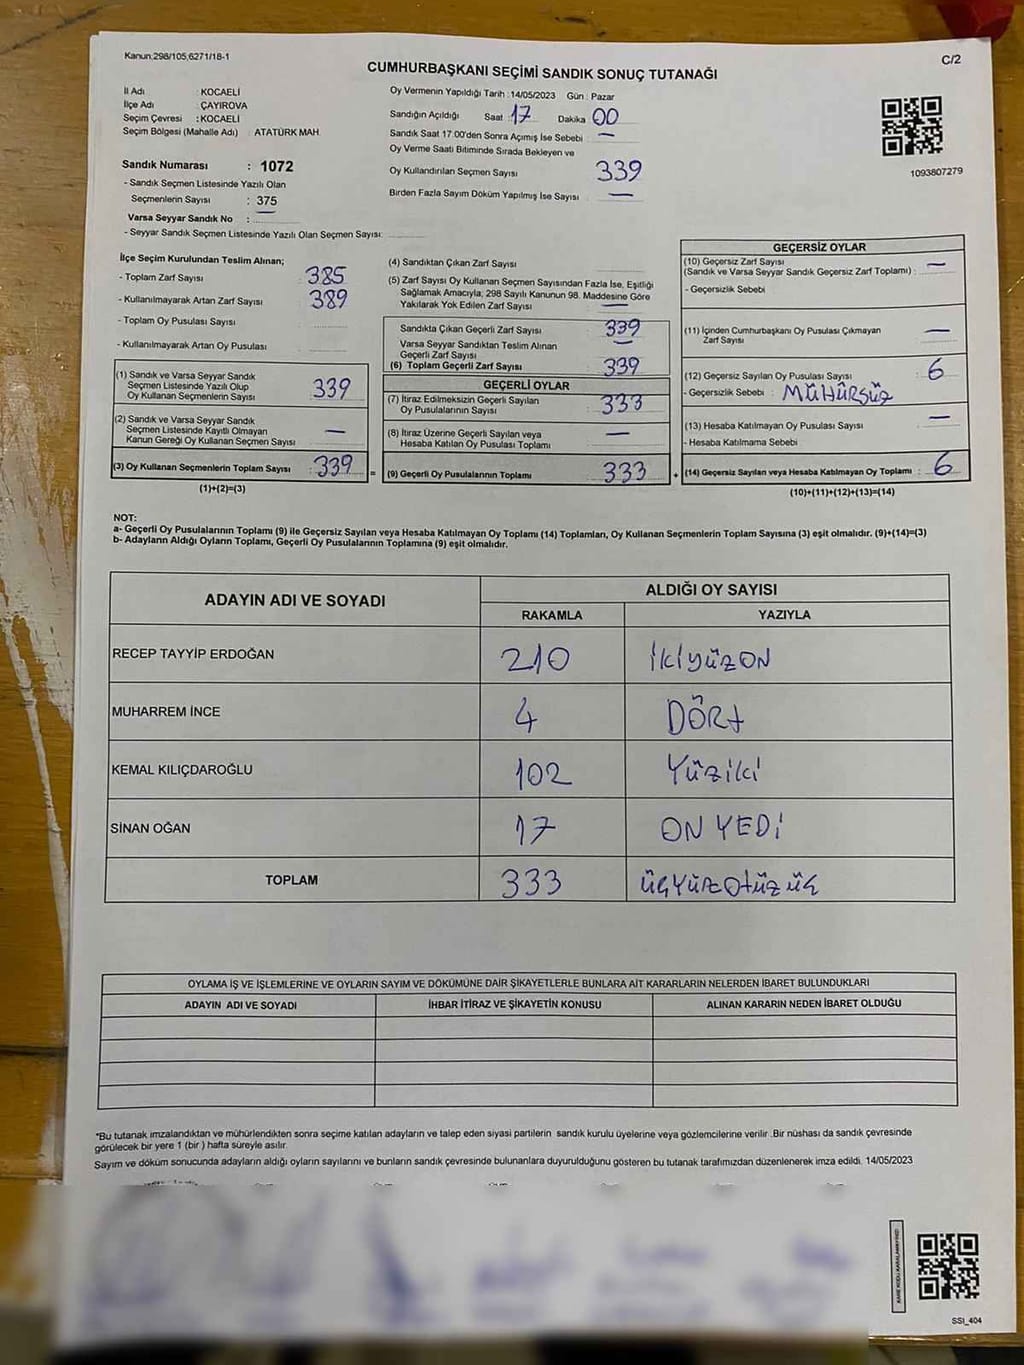 Kanun:298/105,6271/18-1
C/2
CUMHURBAŞKANI SEÇİMİ SANDIK SONUÇ TUTANAĞI
İl Adı : KOCAELİ
İlçe Adı : ÇAYIROVA
Seçim Çevresi : KOCAELİ
Seçim Bölgesi (Mahalle Adı) : ATATÜRK MAH.
Sandık Numarası : 1072
- Sandık Seçmen Listesinde Yazılı Olan
Seçmenlerin Sayısı : 375
Varsa Seyyar Sandık No : —
- Seyyar Sandık Seçmen Listesinde Yazılı Olan Seçmen Sayısı:
Oy Vermenin Yapıldığı Tarih : 14/05/2023 Gün : Pazar
Sandığın Açıldığı Saat : 17 Dakika 00
Sandık Saat 17.00'den Sonra Açımış İse Sebebi : —
Oy Verme Saati Bitiminde Sırada Bekleyen ve
Oy Kullandırılan Seçmen Sayısı : 339
Birden Fazla Sayım Döküm Yapılmış İse Sayısı : —
1093807279
İlçe Seçim Kurulundan Teslim Alınan;
- Toplam Zarf Sayısı : 385
- Kullanılmayarak Artan Zarf Sayısı : 389
- Toplam Oy Pusulası Sayısı :
- Kullanılmayarak Artan Oy Pusulası :
(1) Sandık ve Varsa Seyyar Sandık
Seçmen Listesinde Yazılı Olup
Oy Kullanan Seçmenlerin Sayısı : 339
(2) Sandık ve Varsa Seyyar Sandık
Seçmen Listesinde Kayıtlı Olmayan
Kanun Gereği Oy Kullanan Seçmen Sayısı : —
(3) Oy Kullanan Seçmenlerin Toplam Sayısı : 339 =
(1)+(2)=(3)
(4) Sandıktan Çıkan Zarf Sayısı
(5) Zarf Sayısı Oy Kullanan Seçmen Sayısından Fazla İse, Eşitliği
Sağlamak Amacıyla; 298 Sayılı Kanunun 98. Maddesine Göre
Yakılarak Yok Edilen Zarf Sayısı : —
Sandıkta Çıkan Geçerli Zarf Sayısı : 339
Varsa Seyyar Sandıktan Teslim Alınan
Geçerli Zarf Sayısı : —
(6) Toplam Geçerli Zarf Sayısı : 339
GEÇERLİ OYLAR
(7) İtiraz Edilmeksizin Geçerli Sayılan
Oy Pusulalarının Sayısı : 333
(8) İtiraz Üzerine Geçerli Sayılan veya
Hesaba Katılan Oy Pusulası Toplamı : —
(9) Geçerli Oy Pusulalarının Toplamı : 333 +
GEÇERSİZ OYLAR
(10) Geçersiz Zarf Sayısı
(Sandık ve Varsa Seyyar Sandık Geçersiz Zarf Toplamı) : —
- Geçersizlik Sebebi
(11) İçinden Cumhurbaşkanı Oy Pusulası Çıkmayan
Zarf Sayısı : —
(12) Geçersiz Sayılan Oy Pusulası Sayısı : 6
- Geçersizlik Sebebi : MÜHÜRSÜZ
(13) Hesaba Katılmayan Oy Pusulası Sayısı : —
- Hesaba Katılmama Sebebi
(14) Geçersiz Sayılan veya Hesaba Katılmayan Oy Toplamı : 6
(10)+(11)+(12)+(13)=(14)
NOT:
a- Geçerli Oy Pusulalarının Toplamı (9) ile Geçersiz Sayılan veya Hesaba Katılmayan Oy Toplamı (14) Toplamları, Oy Kullanan Seçmenlerin Toplam Sayısına (3) eşit olmalıdır. (9)+(14)=(3)
b- Adayların Aldığı Oyların Toplamı, Geçerli Oy Pusulalarının Toplamına (9) eşit olmalıdır.
ADAYIN ADI VE SOYADI ALDIĞI OY SAYISI
RAKAMLA YAZIYLA
RECEP TAYYİP ERDOĞAN 210 İKİYÜZON
MUHARREM İNCE 4 DÖRT
KEMAL KILIÇDAROĞLU 102 Yüziki
SİNAN OĞAN 17 ON YEDİ
TOPLAM 333 ÜÇYÜZOTÜZÜÇ
OYLAMA İŞ VE İŞLEMLERİNE VE OYLARIN SAYIM VE DÖKÜMÜNE DAİR ŞİKAYETLERLE BUNLARA AİT KARARLARIN NELERDEN İBARET BULUNDUKLARI
ADAYIN ADI VE SOYADI İHBAR İTİRAZ VE ŞİKAYETİN KONUSU ALINAN KARARIN NEDEN İBARET OLDUĞU
*Bu tutanak imzalandıktan ve mühürlendikten sonra seçime katılan adayların ve talep eden siyasi partilerin sandık kurulu üyelerine veya gözlemcilerine verilir .Bir nüshası da sandık çevresinde
görülecek bir yere 1 (bir ) hafta süreyle asılır.
Sayım ve döküm sonucunda adayların aldığı oyların sayılarını ve bunların sandık çevresinde bulunanlara duyurulduğunu gösteren bu tutanak tarafımızdan düzenlenerek imza edildi. 14/05/2023
SSI_404